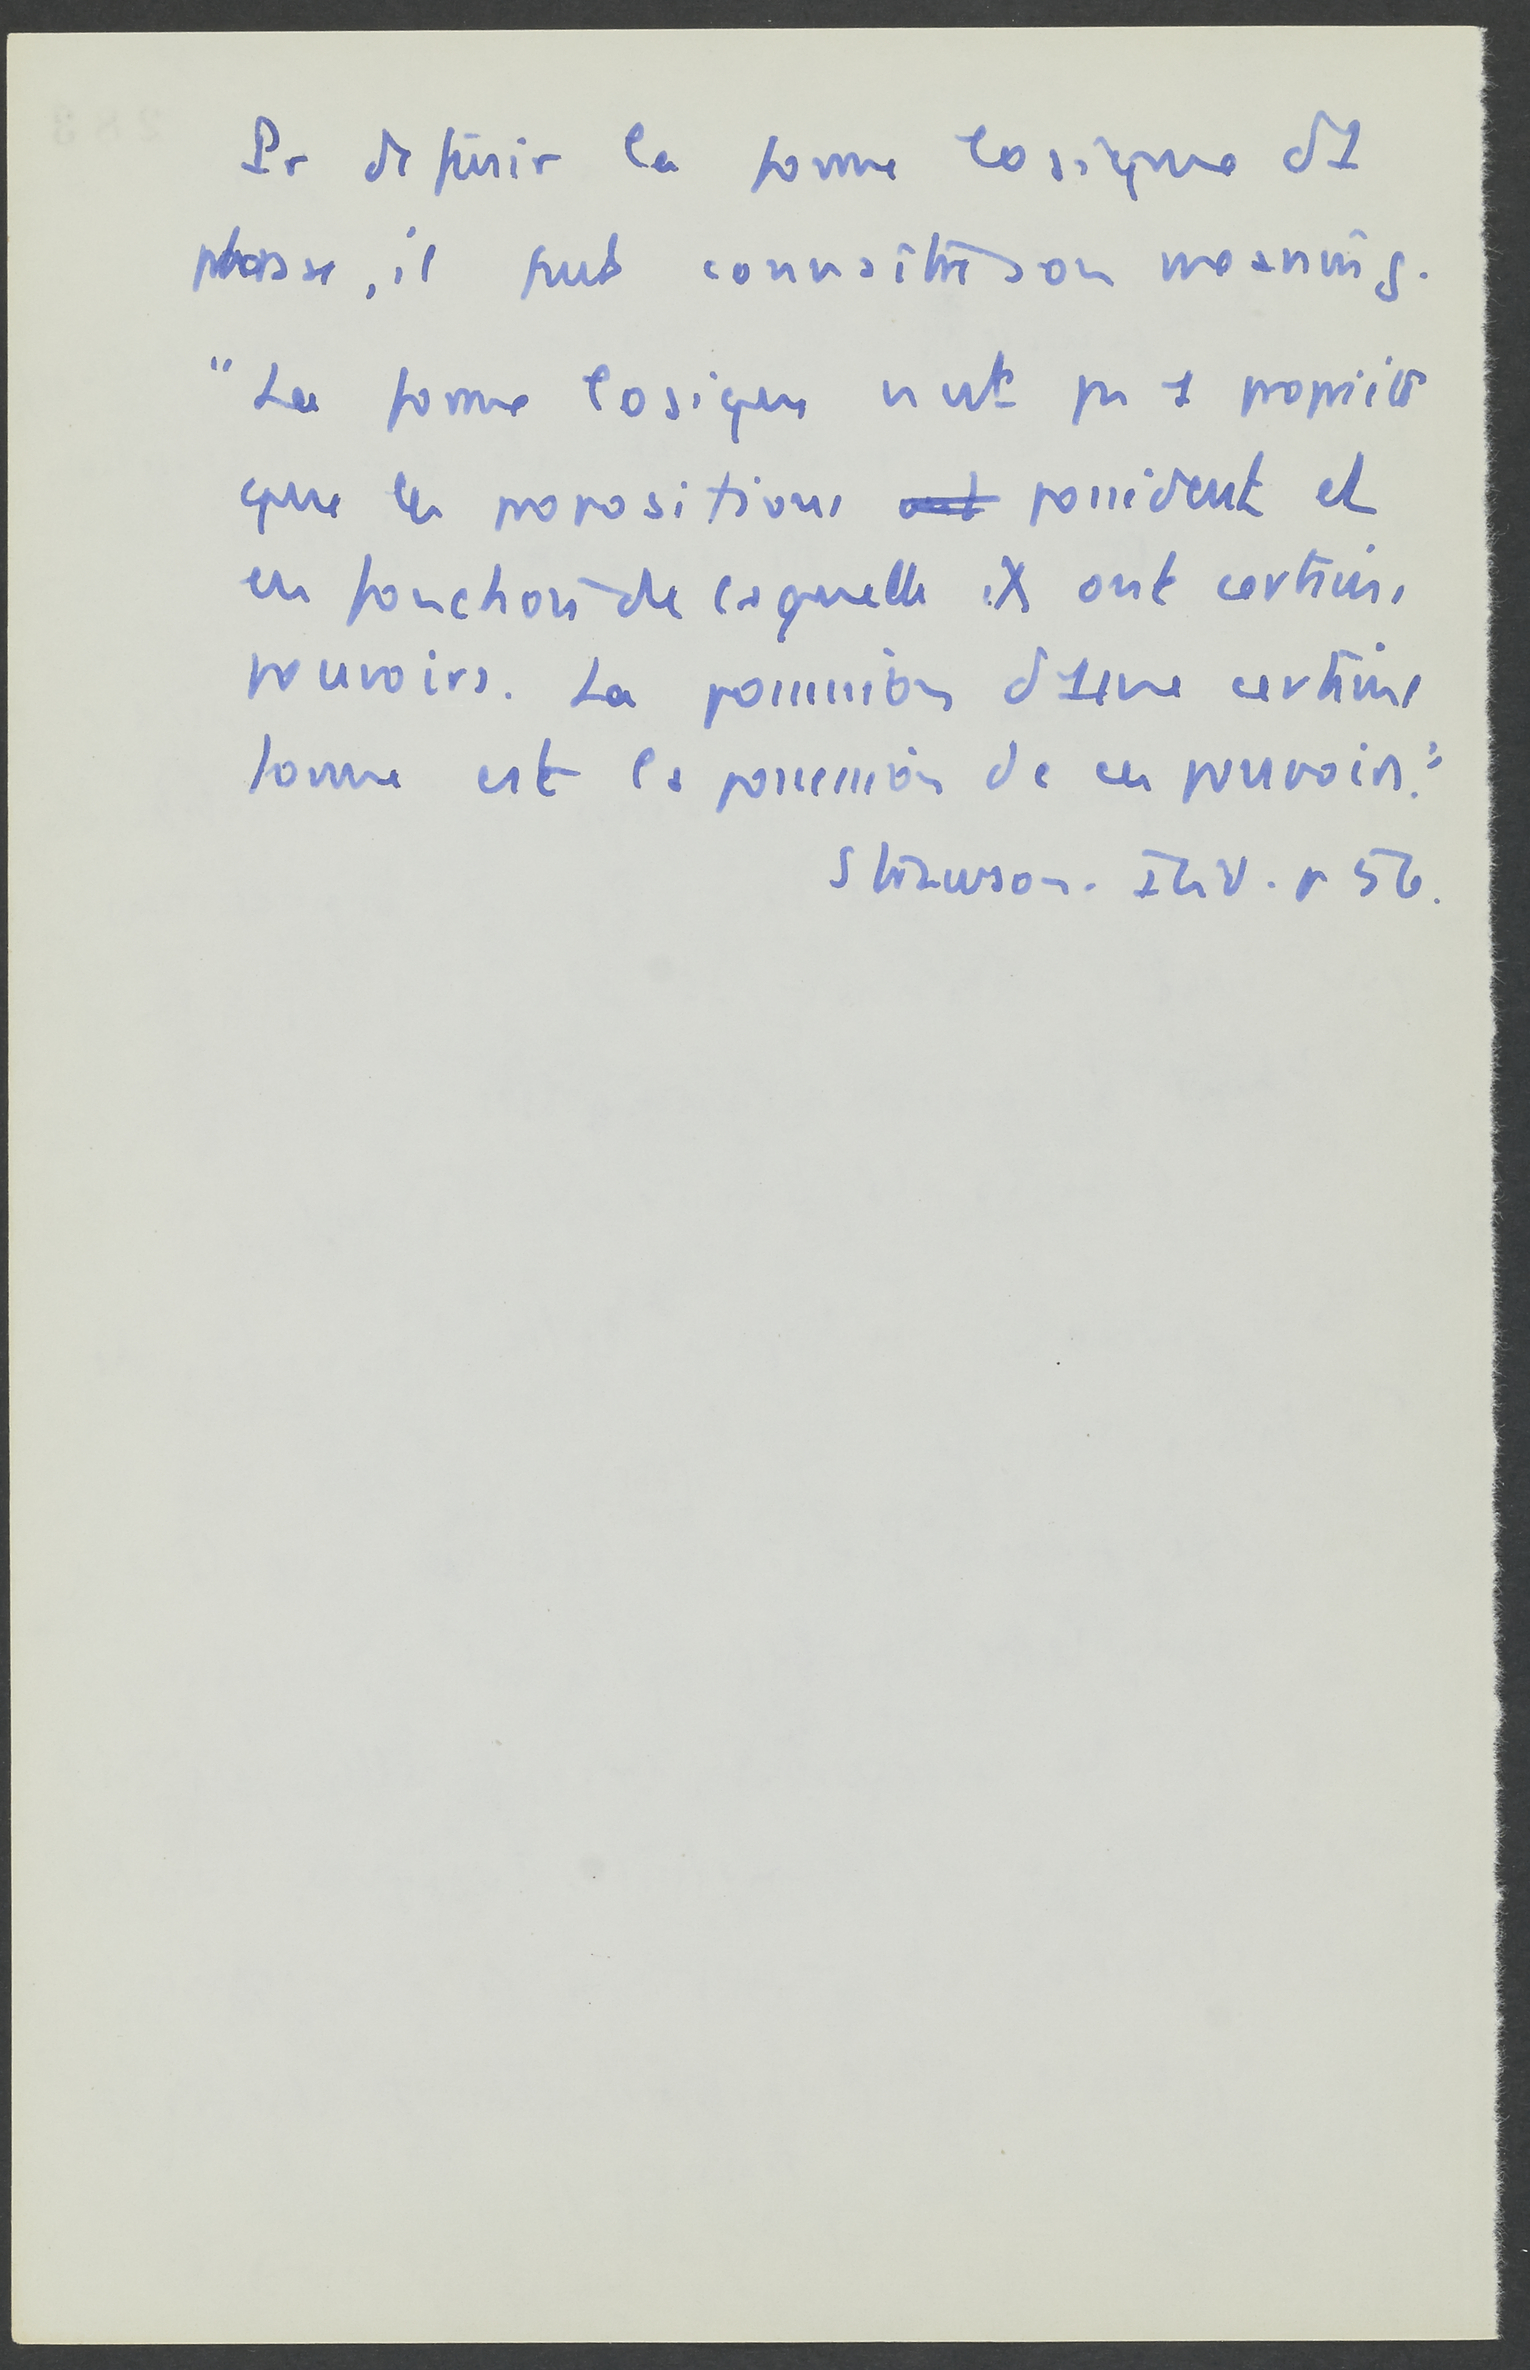 Pr definir la forme logique d1
phrase, il faut connaître son meaning.
"La forme logique n'est pas 1 propriété
que les propositions ont possèdent et
en fonction de laquelle ils ont certains
pouvoirs. La possession d'1une certaine
forme est la possession de ces pouvoirs."
Strawson. Ibid. p 56.